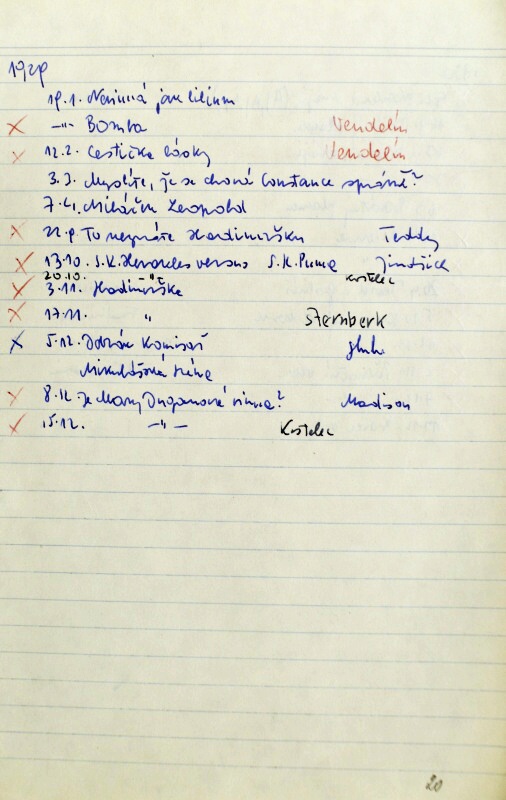 1929
19.1. Nevinná jak lilium
—"— Bomba Vendelín
12.2. Cestička lásky Vendelín
3.3. Myslíte, že se chová Constance správně?
7.4. Miláček Leopold
22.9. To neznáte Hadimršku Teddy
13.10. S.K. Herkules versus S.K. Puma Jindřich
20.10. —"— Kostelec
3.11. Hadimrška
17.11. " Sternberk
5.12. Komisař
Mikulášská
8.12. Je Mary Duganová vinna? Madison
15.12. —"— Kostelec
20